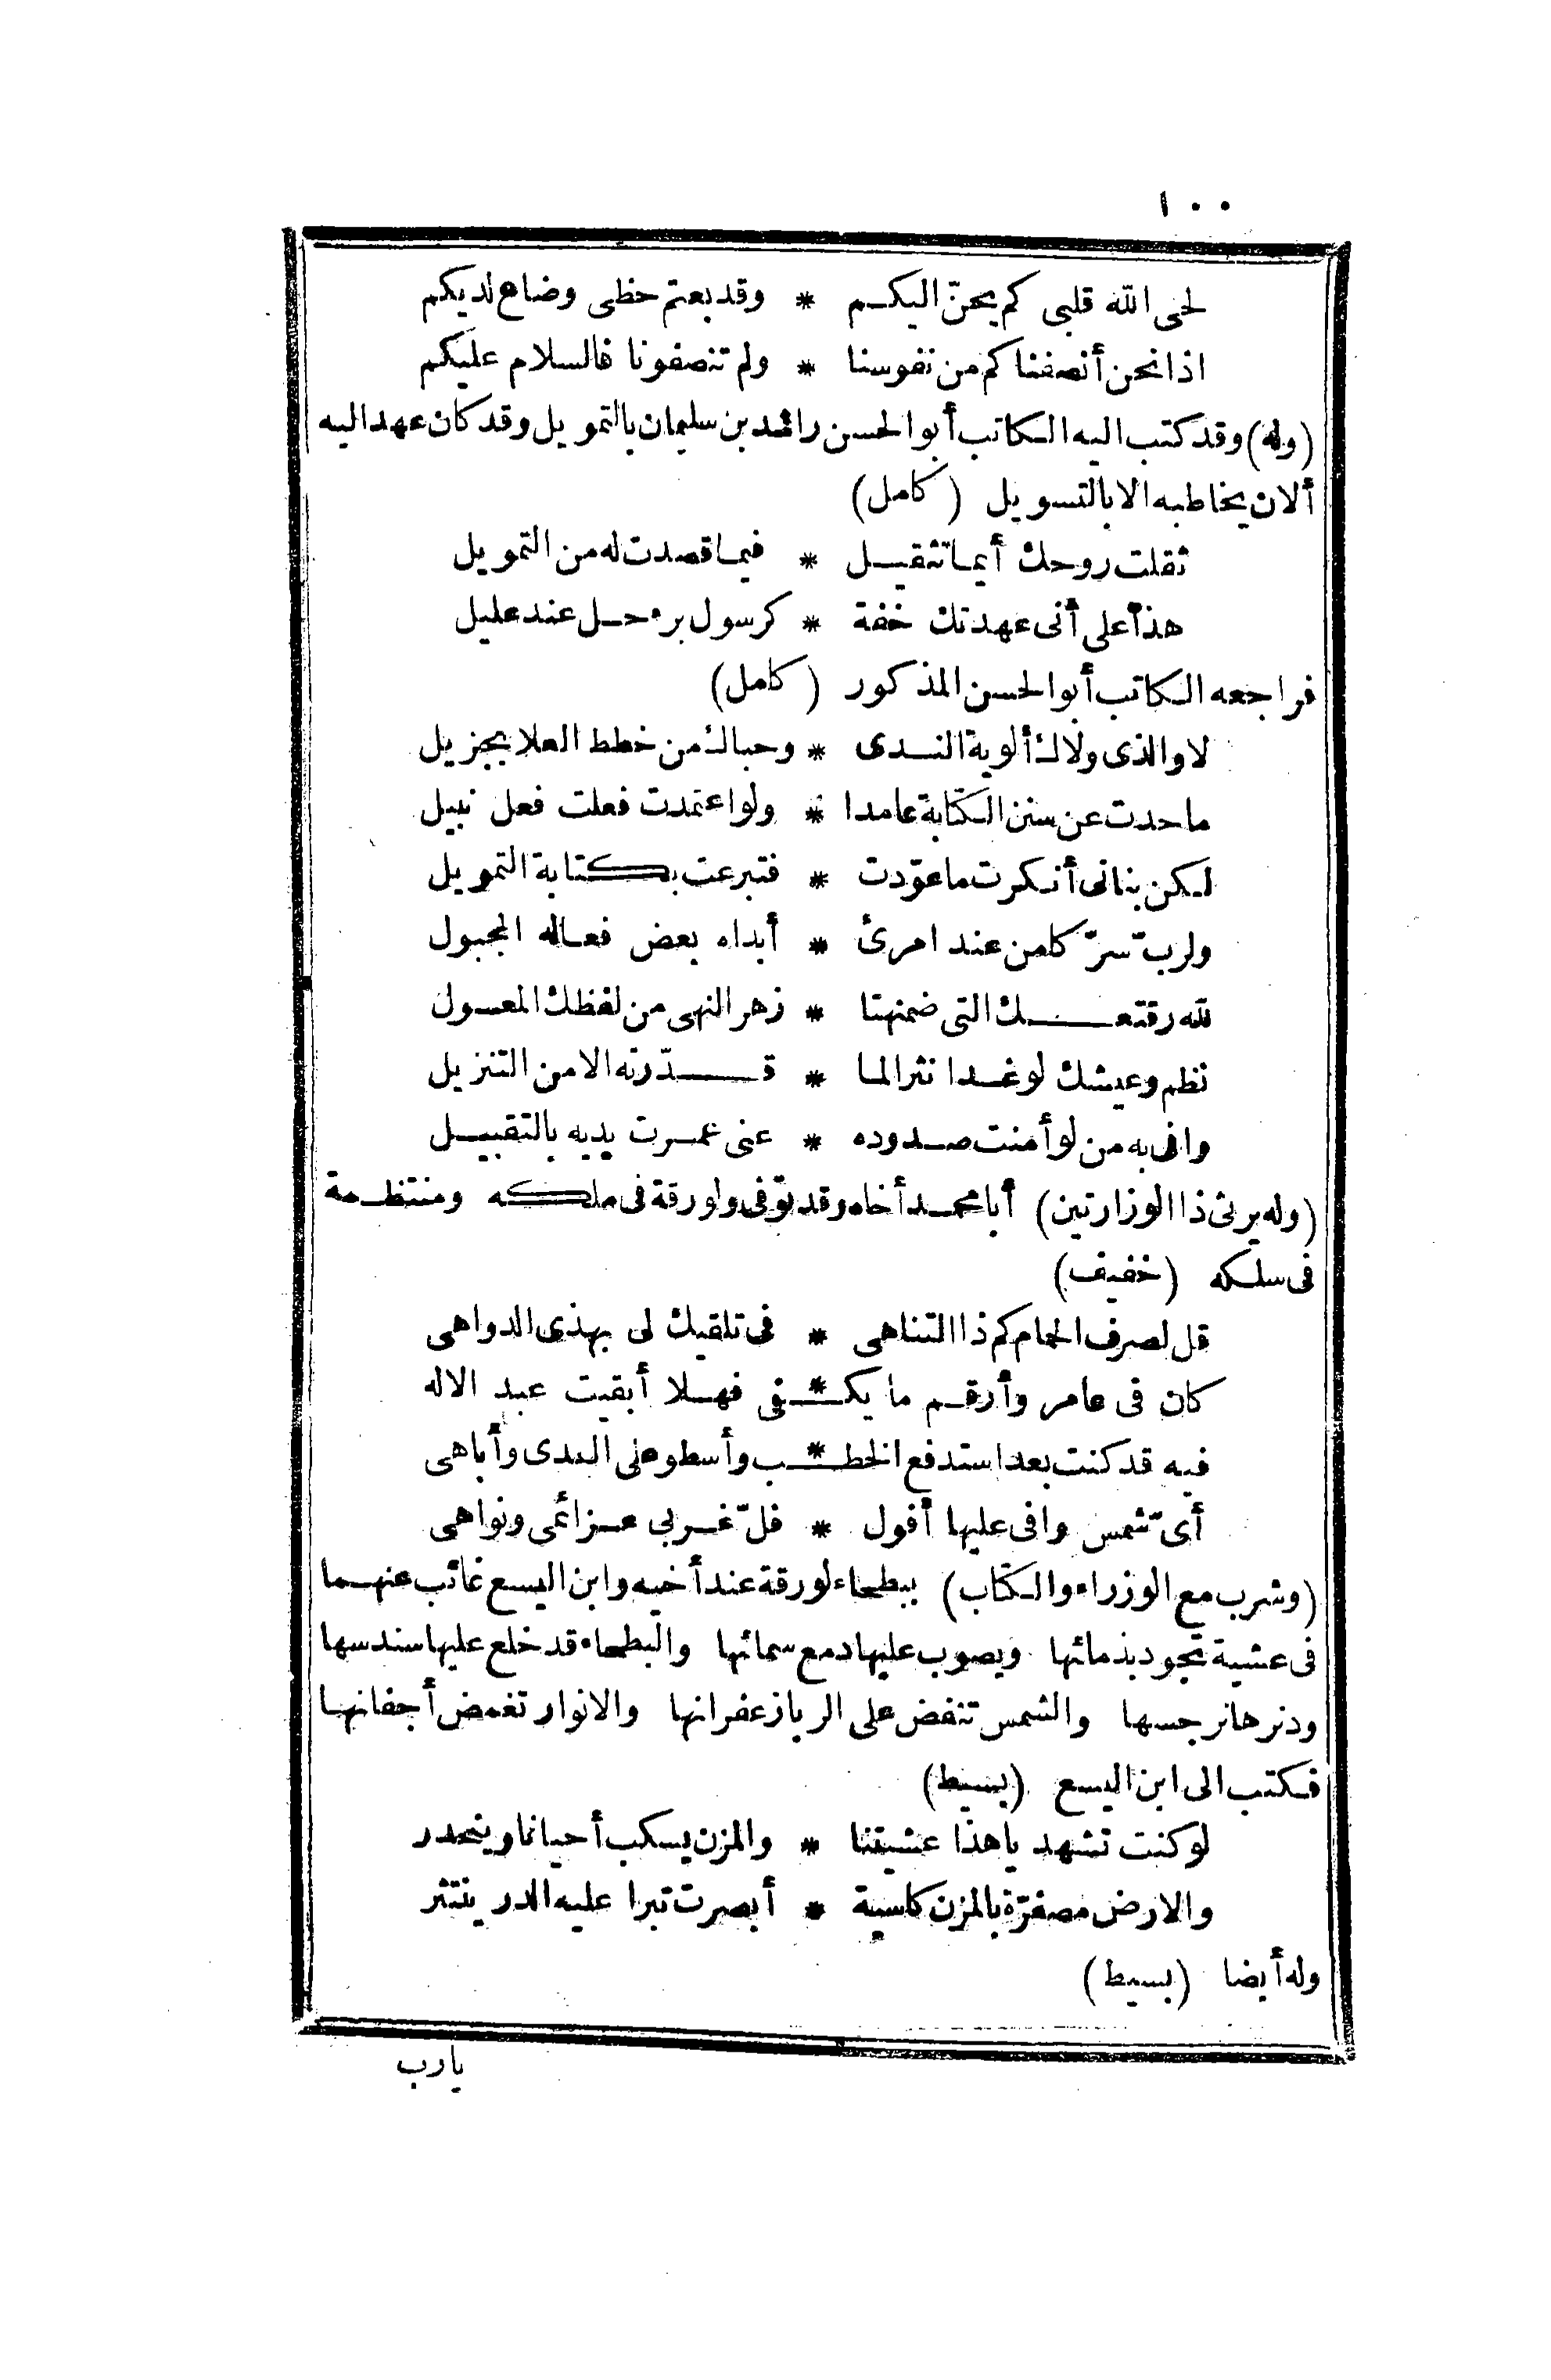 ١٠٠
لحى الله قلبى كم يحنّ اليكم * وقد بعتم حظى وضاع لديكم
اذا نحن أنصفناكم من نفوسنا * ولم تنصفونا فالسلام عليكم
(وله) وقد كتب اليه الكاتب أبو الحسن راشد بن سليمان بالتمويل وقد كان عهد اليه
ألا ن يخاطبه الا بالتسويل (كامل)
ثقلت روحك أيما تثقيل * فيما قصدت له من التمويل
هذا على أنى عهدتك خفة * كرسول برء حل عند عليل
فراجعه الكاتب أبو الحسن المذكور (كامل)
لا والذى ولاك ألوية الندى * وحباك من خطط العلا بجزيل
ما حدت عن سنن الكتابة عامدا * ولو اعتمدت فعلت فعل نبيل
لكن بنانى أنكرت ما عوّدت * فتبرعت بكتابة التمويل
ولربّ سرّ كامن عند امرئ * أبداه بعض فعاله المجبول
لله رقتعك التى ضمنهتا * زهر النهى من لفظك المعسول
نظم وعيشك لو غدا نثرا لما * قدّرته الا من التنزيل
وافى به من لو أمنت صدوده * عنى غمرت يديه بالتقبيل
(وله يرثى ذا الوزارتين) أبا محمد أخاه وقد توفى ولورقة فى ملكه ومنتظمة
فى سلكه (خفيف)
قل لصرف الحمام كم ذا التناهى * فى تلقيك لى بهذى الدواهى
كان فى عامر وأرقم ما يكـ * ـفى فهلا أبقيت عبد الاله
فيه قد كنت بعد استدفع الخطـ * ـب وأسطو على العدى وأباهى
أىّ شمس وافى عليها أفول * فلّ غربى عزائمى ونواهى
(وشرب مع الوزراء والكتاب) ببطحاء لورقة عند أخيه وابن اليسع غائب عنهما
فى عشية تجود بذمائها ويصوب عليها دمع سمائها والبطحاء قد خلع عليها سندسها
ودنرها نرجسها والشمس تنفض على الربا زعفرانها والانوار تغمض أجفانها
فكتب الى ابن اليسع (بسيط)
لو كنت تشهد يا هذا عشيتنا * والمزن يسكب أحيانا وينحدر
والارض مصفرّة بالمزن كاسية * أبصرت تبرا عليه الدر ينتثر
وله أيضا (بسيط)
يارب